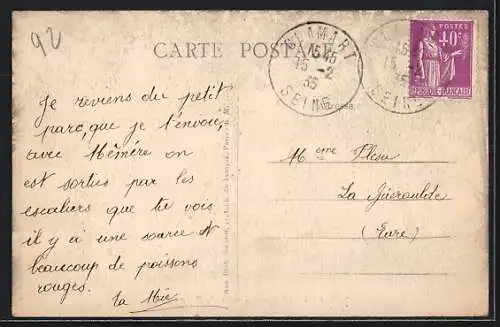 92
CARTE POSTALE
CLAMART
15 45
15 -2
35
SEINE
POSTES
40c
REPUBLIQUE FRANÇAISE
Je reviens du petit
parc, que je t'envoie,
avec Mémère on
est sorties par les
escaliers que tu vois
il y a une source et
beaucoup de poissons
rouges.
ta Mie
Mme
La
(Eure)